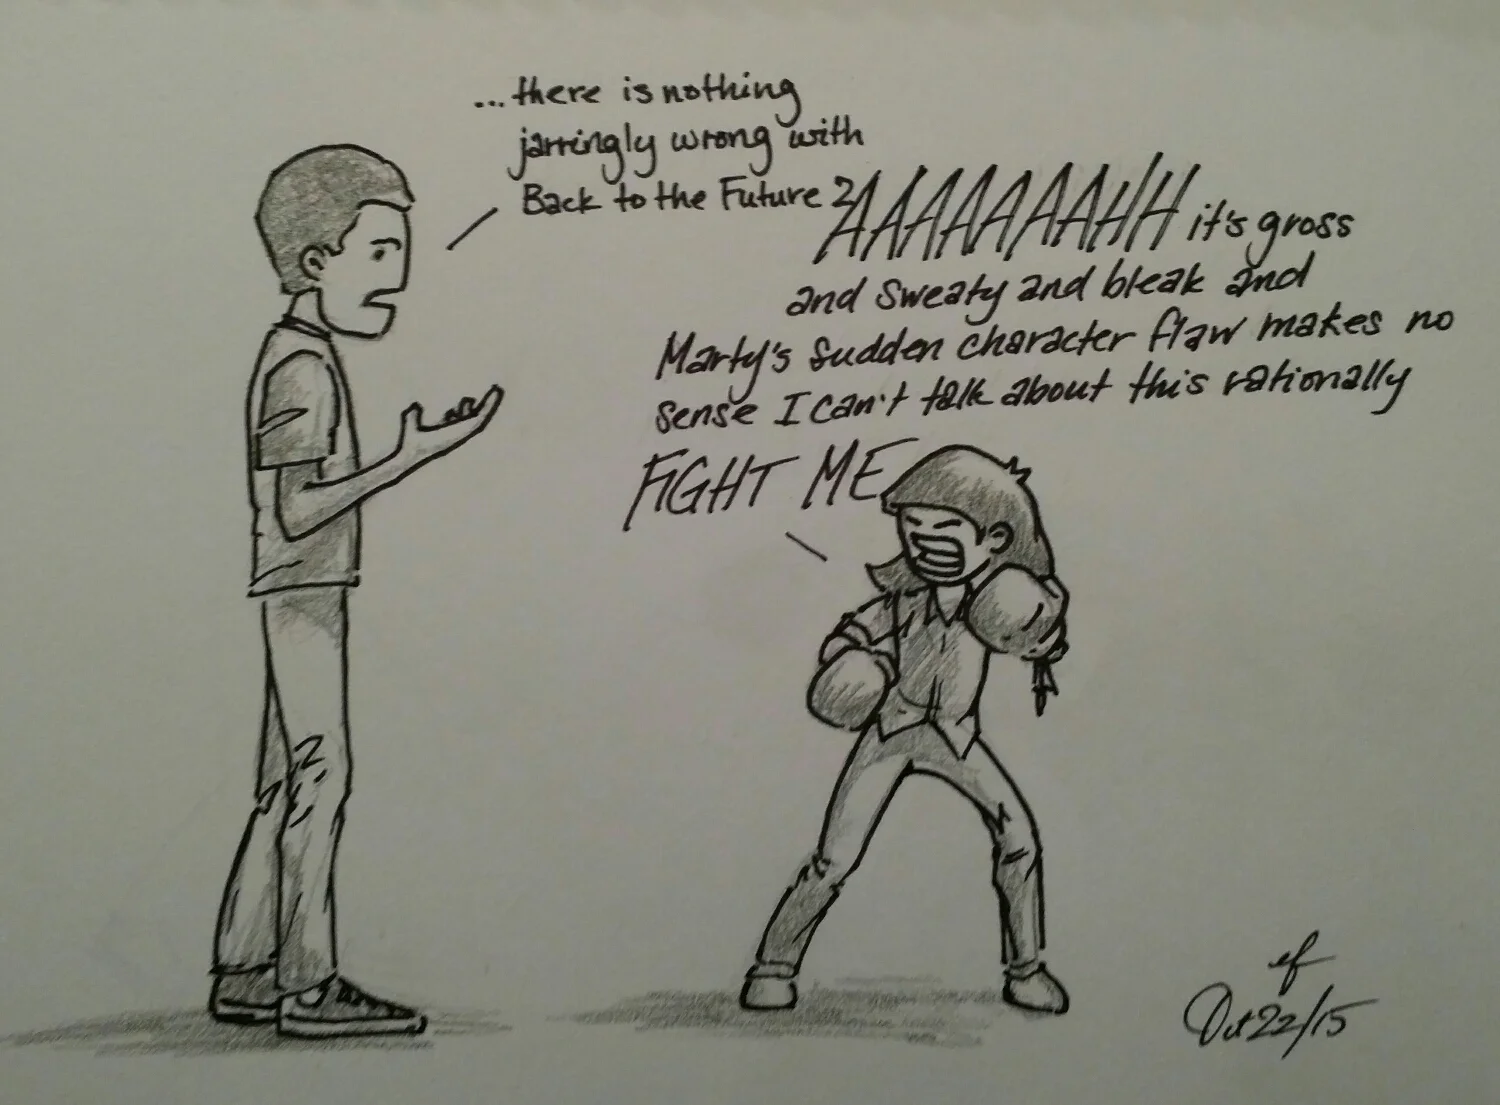 ...there is nothing
jarringly wrong with
Back to the Future 2
AAAAAAAHH it's gross
and sweaty and bleak and
Marty's sudden character flaw makes no
sense I can't talk about this rationally
FIGHT ME
ef
Oct 22/15